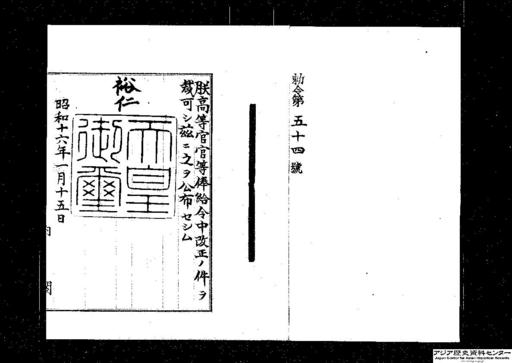 勅令第五十四號
朕高等官官等俸給令中改正ノ件ヲ
裁可シ茲ニ之ヲ公布セシム
裕仁
天皇
御璽
昭和十六年一月十五日
内閣
アジア歴史資料センター
Japan Center for Asian Historical Records